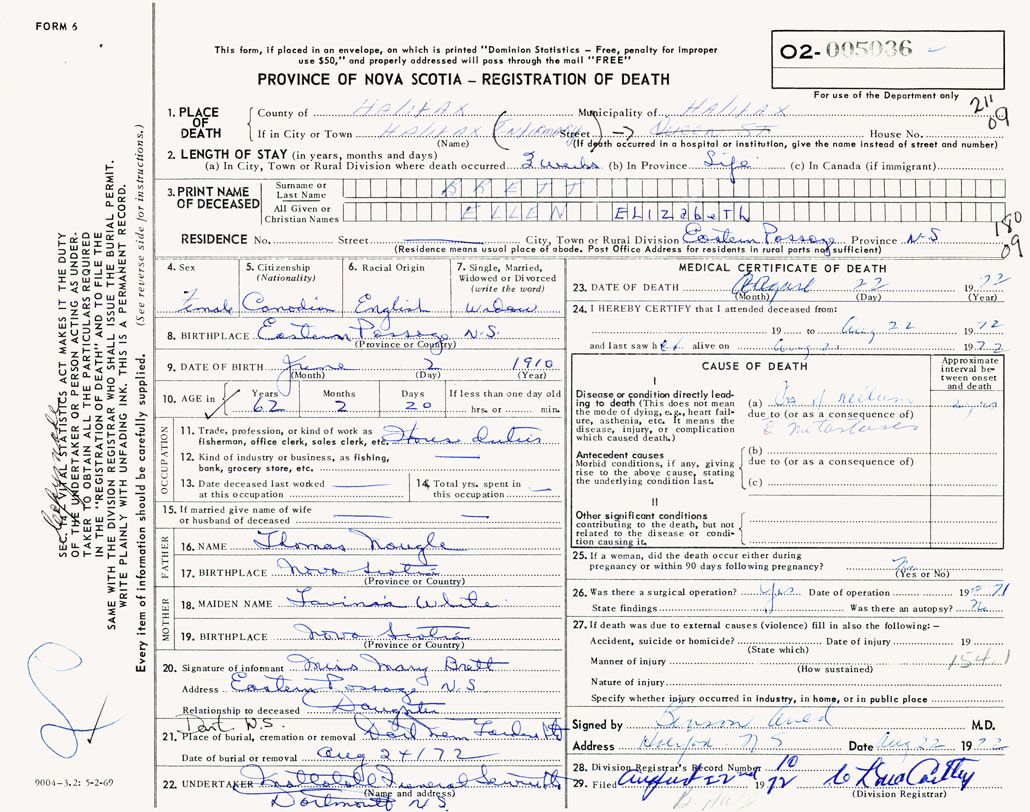 FORM 6
This form, if placed in an envelope, on which is printed "Dominion Statistics – Free, penalty for improper
use $50," and properly addressed will pass through the mail "FREE"
PROVINCE OF NOVA SCOTIA – REGISTRATION OF DEATH
O2- 005036
For use of the Department only
211
09
1. PLACE OF DEATH
County of HALIFAX Municipality of HALIFAX
If in City or Town HALIFAX (INFIRMARY) Street → QUEEN ST House No.
(Name) (If death occurred in a hospital or institution, give the name instead of street and number)
2. LENGTH OF STAY (in years, months and days)
(a) In City, Town or Rural Division where death occurred 3 weeks (b) In Province Life (c) In Canada (if immigrant)
3. PRINT NAME OF DECEASED
Surname or Last Name BRETT
All Given or Christian Names ELLEN ELIZabeTh
180
09
RESIDENCE No. Street City, Town or Rural Division Eastern Passage Province N-S
(Residence means usual place of abode. Post Office Address for residents in rural parts not sufficient)
4. Sex Female
5. Citizenship (Nationality) Canadian
6. Racial Origin English
7. Single, Married, Widowed or Divorced (write the word) Widow
8. BIRTHPLACE Eastern Passage N.S.
(Province or Country)
9. DATE OF BIRTH June 2 1910
(Month) (Day) (Year)
10. AGE in Years 62 Months 2 Days 20 If less than one day hrs. or min.
OCCUPATION
11. Trade, profession, or kind of work as fisherman, office clerk, sales clerk, etc. House Duties
12. Kind of industry or business, as fishing, bank, grocery store, etc.
13. Date deceased last worked at this occupation
14. Total yrs. spent in this occupation
15. If married give name of wife or husband of deceased
FATHER
16. NAME Thomas Naugle
17. BIRTHPLACE Nova Scotia
(Province or Country)
MOTHER
18. MAIDEN NAME White
19. BIRTHPLACE Nova Scotia
(Province or Country)
20. Signature of informant Miss Mary Brett
Address Eastern Passage N.S
Relationship to deceased Daughter
Dart. N.S.
21. Place of burial, cremation or removal Dart Mem Gardens
Date of burial or removal Aug 24/72
22. UNDERTAKER Funeral Service
(Name and address)
Dartmouth N.S.
MEDICAL CERTIFICATE OF DEATH
23. DATE OF DEATH August 22 1972
(Month) (Day) (Year)
24. I HEREBY CERTIFY that I attended deceased from:
19 to Aug 22 1972
and last saw her alive on Aug 21 1972
CAUSE OF DEATH
Approximate interval between onset and death
I
Disease or condition directly leading to death (This does not mean the mode of dying, e.g., heart failure, asthenia, etc. It means the disease, injury, or complication which caused death.)
(a) Ca of rectum 2 years
due to (or as a consequence of)
c metastases
Antecedent causes
Morbid conditions, if any, giving rise to the above cause, stating the underlying condition last.
(b)
due to (or as a consequence of)
(c)
II
Other significant conditions
contributing to the death, but not related to the disease or condition causing it.
25. If a woman, did the death occur either during pregnancy or within 90 days following pregnancy? No
(Yes or No)
26. Was there a surgical operation? Yes Date of operation 1971
State findings Was there an autopsy? No
27. If death was due to external causes (violence) fill in also the following: –
Accident, suicide or homicide? Date of injury 19
(State which)
Manner of injury 154.1
(How sustained)
Nature of injury
Specify whether injury occurred in industry, in home, or in public place
Signed by Benson Auld M.D.
Address Halifax N S Date Aug 22 1972
28. Division Registrar's Record Number 10
29. Filed August 22nd 1972
(Division Registrar)
SEC. 14, VITAL STATISTICS ACT MAKES IT THE DUTY
OF THE UNDERTAKER OR PERSON ACTING AS UNDER-
TAKER TO OBTAIN ALL THE PARTICULARS REQUIRED
IN THE "REGISTRATION OF DEATH" AND TO FILE THE
SAME WITH THE DIVISION REGISTRAR WHO SHALL ISSUE THE BURIAL PERMIT.
WRITE PLAINLY WITH UNFADING INK. THIS IS A PERMANENT RECORD.
Every item of information should be carefully supplied. (See reverse side for instructions.)
9004-3.2: 5-2-69